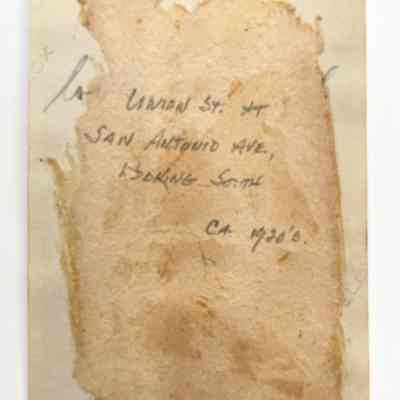 UNION ST. AT
SAN ANTONIO AVE,
LOOKING SOUTH
CA 1920'S.